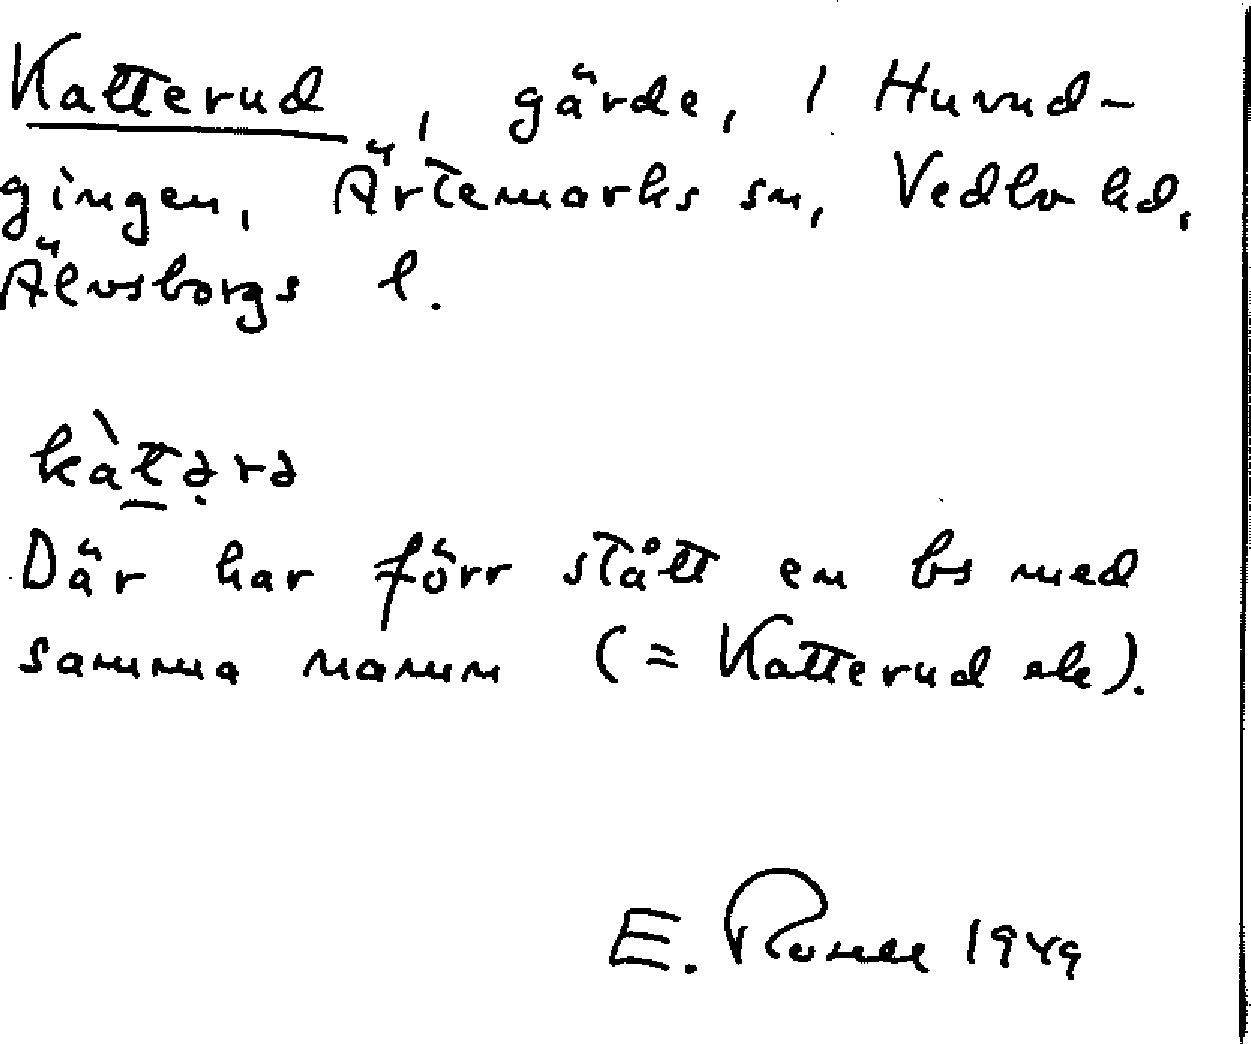 Katterud, gärde, 1 Huvud-
gingen, Ärtemarks sn, Vedbo hd,
Älvsborgs l.
kàt̠ə̣rə
Där har förr stått en bs med
samma namn (= Katterud ek).
E. 1949